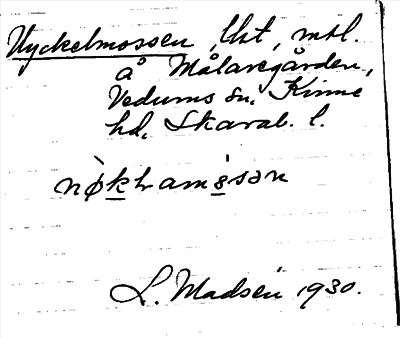 Nyckelmossen, Utt, mtl.
å Målaregården,
Vedums sn, Kinne
hd, Skarab. l.
nø̀khamsən
L. Madsén 1930.